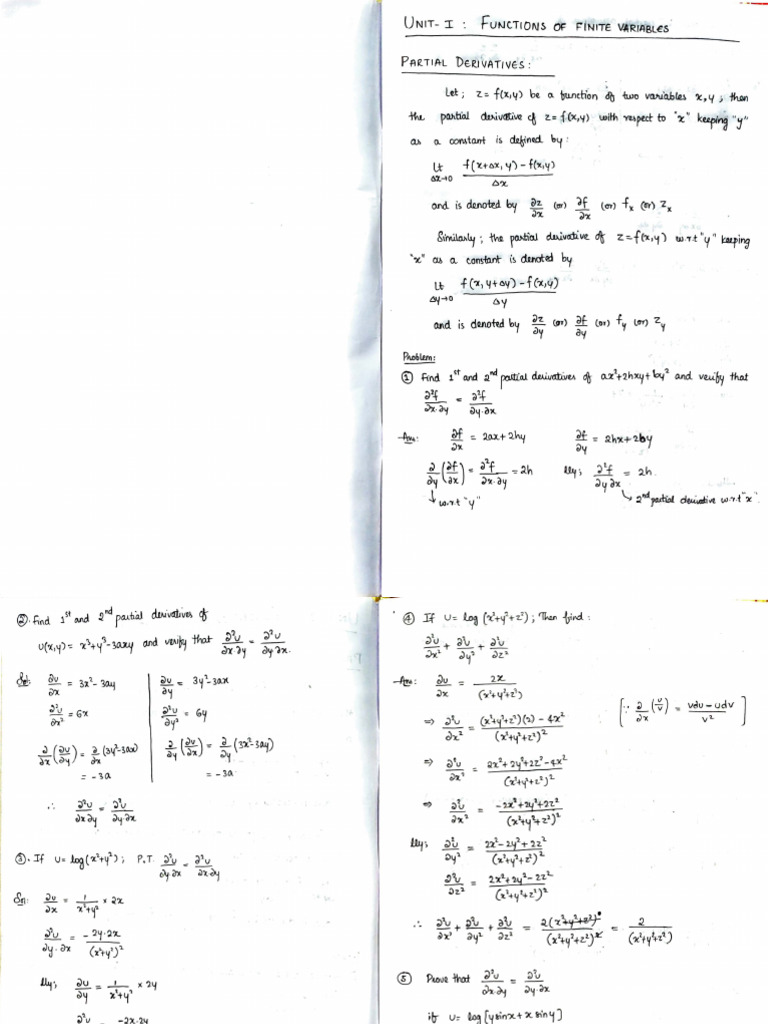 UNIT-I : FUNCTIONS OF FINITE VARIABLES
PARTIAL DERIVATIVES:
Let; z = f(x,y) be a function of two variables x,y; then
the partial derivative of z = f(x,y) with respect to "x" keeping "y"
as a constant is defined by:
Lt Δx→0 f(x+Δx, y) - f(x,y) / Δx
and is denoted by ∂z/∂x (or) ∂f/∂x (or) fx (or) zx
Similarly; the partial derivative of z = f(x,y) w.r.t "y" keeping
"x" as a constant is denoted by
Lt Δy→0 f(x, y+Δy) - f(x,y) / Δy
and is denoted by ∂z/∂y (or) ∂f/∂y (or) fy (or) zy
Problem:
① Find 1st and 2nd partial derivatives of ax²+2hxy+by² and verify that
∂²f/∂x.∂y = ∂²f/∂y.∂x
Ans: ∂f/∂x = 2ax+2hy ∂f/∂y = 2hx+2by
∂/∂y (∂f/∂x) = ∂²f/∂x.∂y = 2h lly; ∂²f/∂y ∂x = 2h.
↓ w.r.t "y" ↘ 2nd partial derivative w.r.t "x".
②. Find 1st and 2nd partial derivatives of
u(x,y) = x³+y³-3axy and verify that ∂²u/∂x ∂y = ∂²u/∂y ∂x.
Sol: ∂u/∂x = 3x²-3ay ∂u/∂y = 3y²-3ax
∂²u/∂x² = 6x ∂²u/∂y² = 6y
∂/∂x (∂u/∂y) = ∂/∂x (3y²-3ax) ∂/∂y (∂u/∂x) = ∂/∂y (3x²-3ay)
= -3a = -3a
∴ ∂²u/∂x ∂y = ∂²u/∂y.∂x
③. If u = log(x²+y²); P.T ∂²u/∂y ∂x = ∂²u/∂x.∂y
Sn: ∂u/∂x = 1/x²+y² × 2x
∂²u/∂y.∂x = -2y.2x/(x²+y²)²
lly; ∂u/∂y = 1/x²+y² × 2y
∂²u -2x.2y
④ If u = log (x²+y²+z²); Then find:
∂²u/∂x² + ∂²u/∂y² + ∂²u/∂z²
Ans: ∂u/∂x = 2x/(x²+y²+z²)
⇒ ∂²u/∂x² = (x²+y²+z²)(2) - 4x²/(x²+y²+z²)² [∵ ∂/∂x (u/v) = vdu - udv/v²]
⇒ ∂²u/∂x² = 2x²+2y²+2z²-4x²/(x²+y²+z²)²
⇒ ∂²u/∂x² = -2x²+2y²+2z²/(x²+y²+z²)²
lly; ∂²u/∂y² = 2x²-2y²+2z²/(x²+y²+z²)²
∂²u/∂z² = 2x²+2y²-2z²/(x²+y²+z²)²
∴ ∂²u/∂x² + ∂²u/∂y² + ∂²u/∂z² = 2(x²+y²+z²)/(x²+y²+z²)² = 2/(x²+y²+z²)
⑤ Prove that ∂²u/∂x.∂y = ∂²u/∂y.∂x
if u = log[ysinx + x siny]